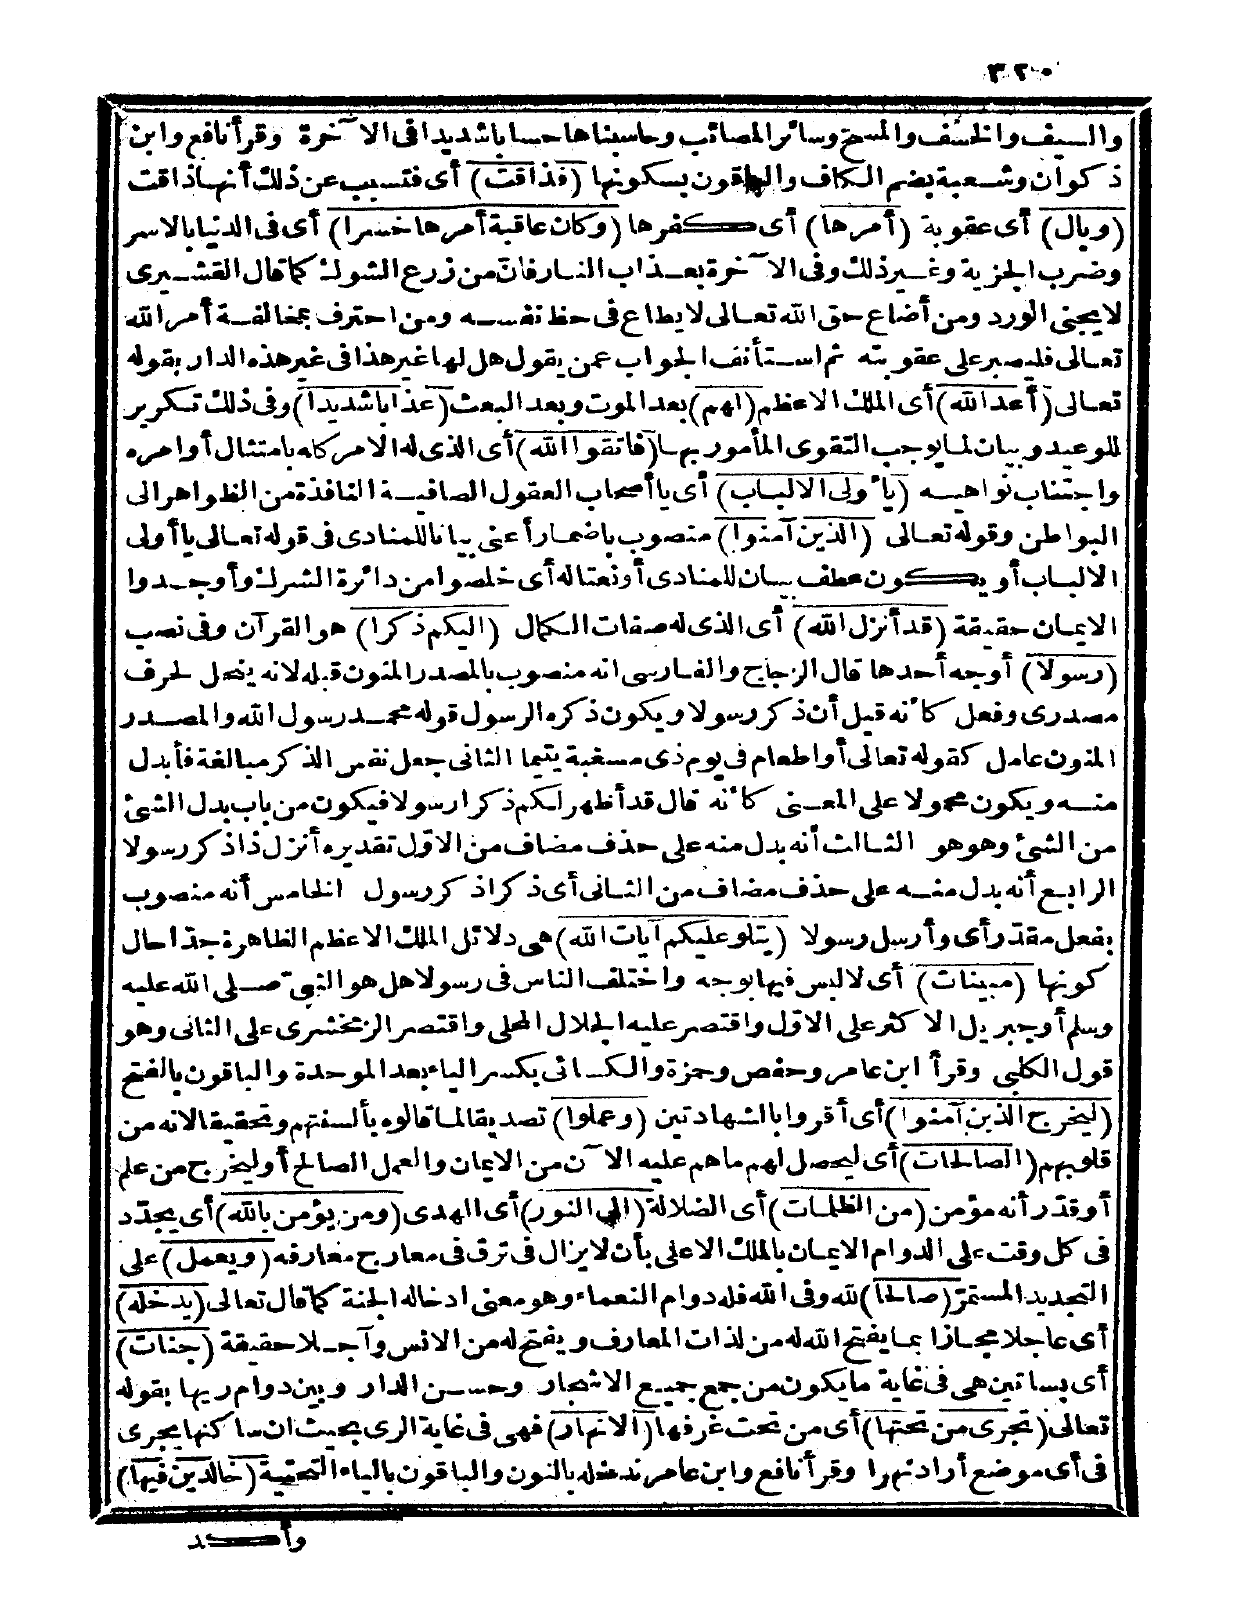 ٣٢٠
والسيف والخسف والمسخ وسائر المصائب وحاسبناها حسابا شديدا في الآخرة وقرأ نافع وابن
ذكوان وشعبة بضم الكاف والباقون بسكونها (فذاقت) أى فتسبب عن ذلك أنها ذاقت
(وبال) أى عقوبة (أمرها) أى كفرها (وكان عاقبة أمرها خسرا) أى فى الدنيا بالاسر
وضرب الجزية وغير ذلك وفى الآخرة بعذاب النار فان من زرع الشوك كما قال القشيرى
لا يجنى الورد ومن أضاع حق الله تعالى لا يطاع فى حظ نفسه ومن احترف بمخالفة أمر الله
تعالى فليصبر على عقوبته ثم استأنف الجواب عمن يقول هل لها غير هذا فى غير هذه الدار بقوله
تعالى (أعد الله) أى الملك الاعظم (لهم) بعد الموت وبعد البعث (عذابا شديدا) وفى ذلك تكرير
للوعيد وبيان لما يوجب التقوى المأمور بها (فاتقوا الله) أى الذى له الامر كله بامتثال أوامره
واجتناب نواهيه (يا أولى الالباب) أى يا أصحاب العقول الصافية النافذة من الظواهر الى
البواطن وقوله تعالى (الذين آمنوا) منصوب باضمار أعنى بيانا للمنادى فى قوله تعالى يا أولى
الالباب أو يكون عطف بيان للمنادى أو نعتا له أى خلصوا من دائرة الشرك وأوجدوا
الايمان حقيقة (قد أنزل الله) أى الذى له صفات الكمال (اليكم ذكرا) هو القرآن وفى نصب
(رسولا) أوجه أحدها قال الزجاج والفارسى انه منصوب بالمصدر المنون قبله لانه ينحل لحرف
مصدرى وفعل كأنه قيل أن ذكر رسولا ويكون ذكره الرسول قوله محمد رسول الله والمصدر
المنون عامل كقوله تعالى أو اطعام فى يوم ذى مسغبة يتيما الثانى جعل نفس الذكر مبالغة فأبدل
منه ويكون محمولا على المعنى كأنه قال قد أظهر لكم ذكرا رسولا فيكون من باب بدل الشئ
من الشئ وهو هو الثالث أنه بدل منه على حذف مضاف من الاوّل تقديره أنزل ذا ذكر رسولا
الرابع أنه بدل منه على حذف مضاف من الثانى أى ذكرا ذكر رسول الخامس أنه منصوب
بفعل مقدّر أى وأرسل رسولا (يتلو عليكم آيات الله) هى دلائل الملك الاعظم الظاهرة جدّا حال
كونها (مبينات) أى لا لبس فيها بوجه واختلف الناس فى رسولا هل هو النبىّ صلى الله عليه
وسلم أو جبريل الاكثر على الاوّل واقتصر عليه الجلال المحلى واقتصر الزمخشرى على الثانى وهو
قول الكلبى وقرأ ابن عامر وحفص وحمزة والكسائى بكسر الياء بعد الموحدة والباقون بالفتح
(ليخرج الذين آمنوا) أى أقروا بالشهادتين (وعملوا) تصديقا لما قالوه بألسنتهم وتحقيقا لانه من
قلوبهم (الصالحات) أى ليحصل لهم ما هم عليه الآن من الايمان والعمل الصالح أو ليخرج من علم
أو قدّر أنه مؤمن (من الظلمات) أى الضلالة (الى النور) أى الهدى (ومن يؤمن بالله) أى يجدّد
فى كل وقت على الدوام الايمان بالملك الاعلى بأن لا يزال فى ترق فى معارج معارفه (ويعمل) على
التجديد المستمرّ (صالحا) لله وفى الله فله دوام النعماء وهو معنى ادخاله الجنة كما قال تعالى (يدخله)
أى عاجلا مجازا بما يفتح الله له من لذات المعارف ويفتح له من الانس وآجلا حقيقة (جنات)
أى بساتين هى فى غاية ما يكون من جمع جميع الاشجار وحسن الدار وبين دوام ريها بقوله
تعالى (تجرى من تحتها) أى من تحت غرفها (الانهار) فهى فى غاية الرى بحيث ان ساكنها يجرى
فى أى موضع أراد نهرا وقرأ نافع وابن عامر ندخله بالنون والباقون بالياء التحتية (خالدين فيها)
وأكد